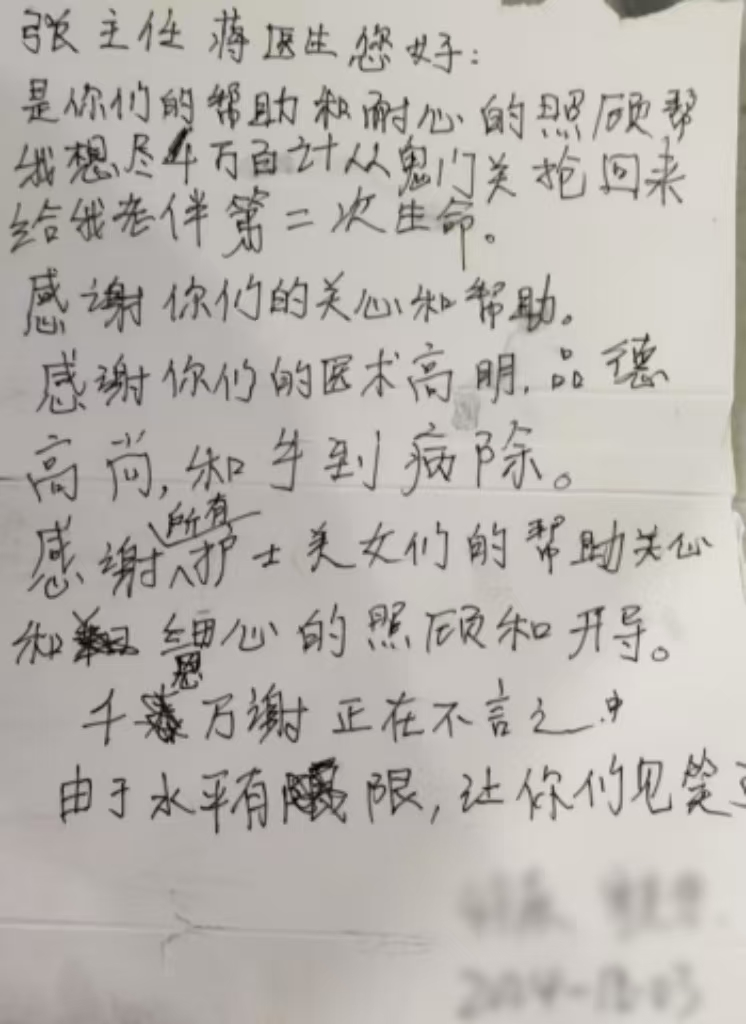 张主任 蒋医生您好:
是你们的帮助和耐心的照顾帮
我想尽千万百计从鬼门关抢回来
给我老伴第二次生命。
感谢你们的关心和帮助。
感谢你们的医术高明,品德
高尚,和手到病除。
感谢所有护士美女们的帮助关心
和细心的照顾和开导。
千恩万谢 正在不言之中
由于水平有限,让你们见笑